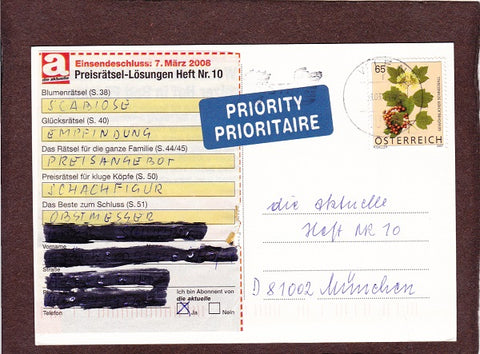 a
die aktuelle
Einsendeschluss: 7. März 2008
Preisrätsel-Lösungen Heft Nr. 10
Blumenrätsel (S. 38)
SCABIOSE
Glücksrätsel (S. 40)
EMPFINDUNG
Das Rätsel für die ganze Familie (S. 44/45)
PREISANGEBOT
Preisrätsel für kluge Köpfe (S. 50)
SCHACHFIGUR
Das Beste zum Schluss (S. 51)
OBSTMESSER
Vorname
Straße
Telefon
Ich bin Abonnent von
die aktuelle
Ja Nein
PRIORITY
PRIORITAIRE
65
ÖSTERREICH
die aktuelle
Heft NR 10
D 81002 München